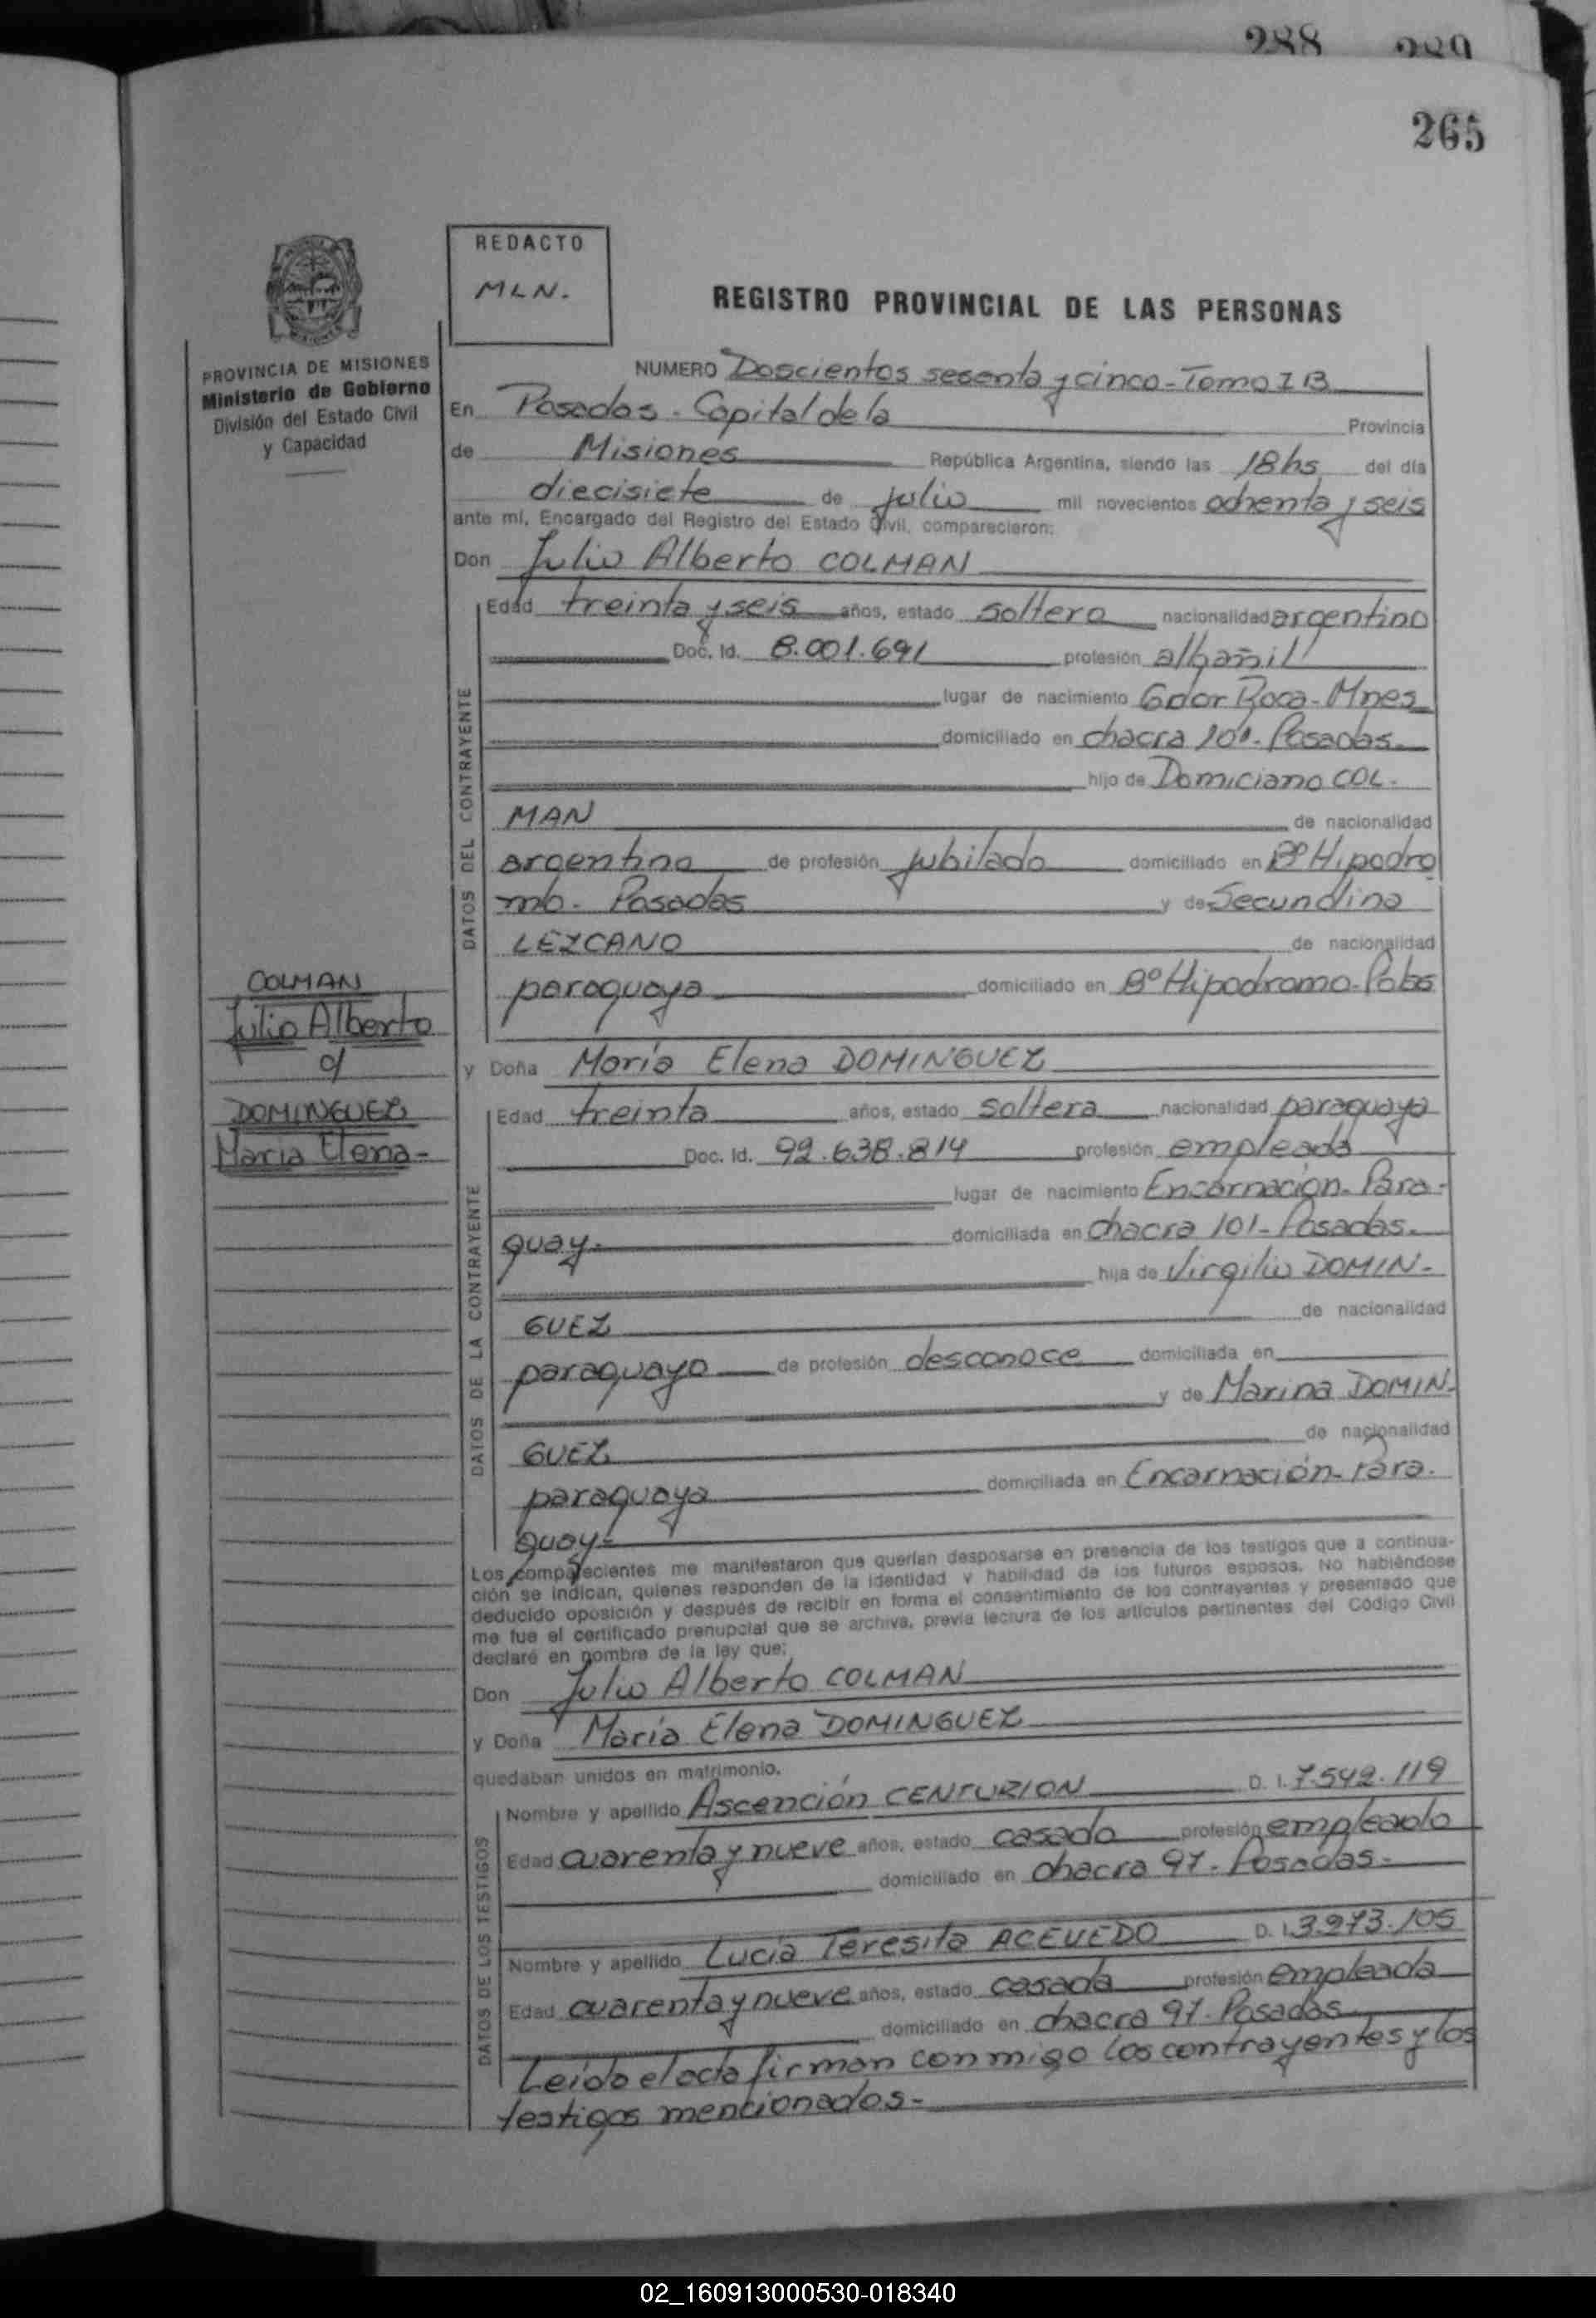 288 289
265
REDACTO
MLN.
REGISTRO PROVINCIAL DE LAS PERSONAS
PROVINCIA DE MISIONES
Ministerio de Gobierno
División del Estado Civil
y Capacidad
NUMERO Doscientos sesenta y cinco - Tomo I B
En Posadas - Capital de la Provincia
de Misiones República Argentina, siendo las 18 hs del día
diecisiete de julio mil novecientos ochenta y seis
ante mí, Encargado del Registro del Estado Civil, comparecieron:
Don Julio Alberto COLMAN
DATOS DEL CONTRAYENTE
Edad treinta y seis años, estado soltero nacionalidad argentino
Doc. Id. 8.001.691 profesión albañil
lugar de nacimiento Gdor Roca - Mnes
domiciliado en chacra 101 - Posadas.
hijo de Domiciano COL-
MAN de nacionalidad
argentino de profesión jubilado domiciliado en Bº Hipodro
mo - Posadas y de Secundina
LEZCANO de nacionalidad
paraguaya domiciliado en Bº Hipodromo - Pdas
COLMAN
Julio Alberto
c/
DOMINGUEZ
Maria Elena -
y Doña María Elena DOMINGUEZ
DATOS DE LA CONTRAYENTE
Edad treinta años, estado soltera nacionalidad paraguaya
Doc. Id. 92.638.814 profesión empleada
lugar de nacimiento Encarnación - Para-
guay - domiciliada en chacra 101 - Posadas.
hija de Virgilio DOMIN-
GUEZ de nacionalidad
paraguayo de profesión desconoce domiciliada en
y de Marina DOMIN-
GUEZ de nacionalidad
paraguaya domiciliada en Encarnación - Para.
guay -
Los comparecientes me manifestaron que querían desposarse en presencia de los testigos que a continua-
ción se indican, quienes responden de la identidad y habilidad de los futuros esposos. No habiéndose
deducido oposición y después de recibir en forma el consentimiento de los contrayentes y presentado que
me fue el certificado prenupcial que se archiva, previa lectura de los artículos pertinentes del Código Civil
declaré en nombre de la ley que:
Don Julio Alberto COLMAN
y Doña María Elena DOMINGUEZ
quedaban unidos en matrimonio.
DATOS DE LOS TESTIGOS
Nombre y apellido Ascención CENTURION D. I. 7.542.119
Edad cuarenta y nueve años, estado casado profesión empleado
domiciliado en chacra 97 - Posadas -
Nombre y apellido Lucía Teresita ACEVEDO D. I. 3.973.105
Edad cuarenta y nueve años, estado casada profesión empleada
domiciliado en chacra 97 - Posadas
Leída el acta firman conmigo los contrayentes y los
testigos mencionados -
02_160913000530-018340